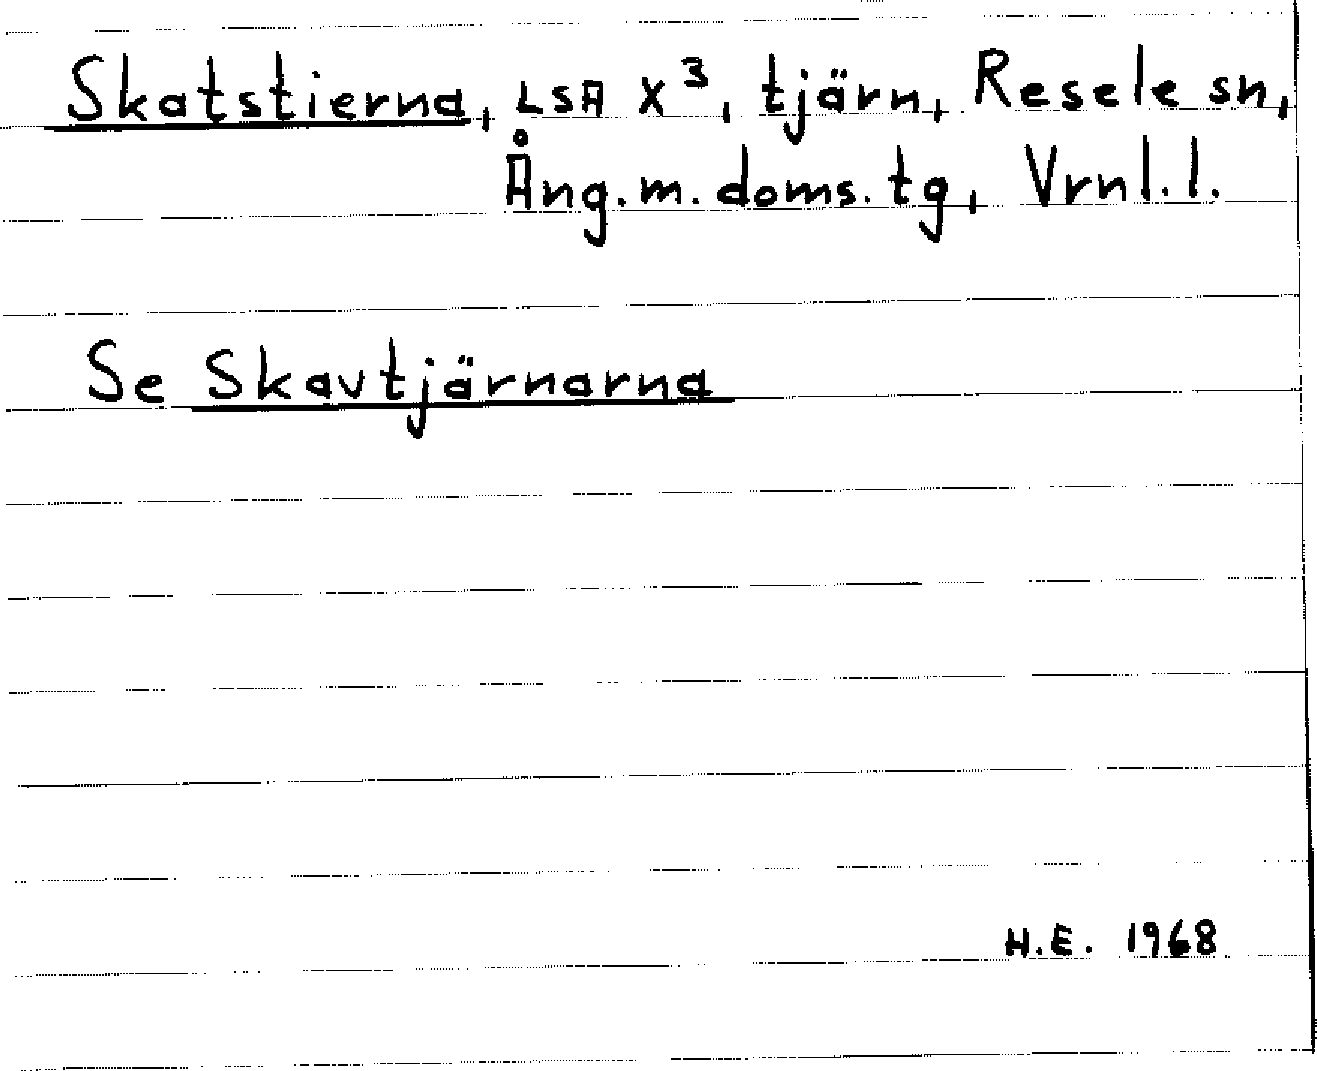 Skatstierna, LSA X³, tjärn, Resele sn,
Ång.m.doms.tg, Vrnl.l.
Se Skavtjärnarna
H.E. 1968